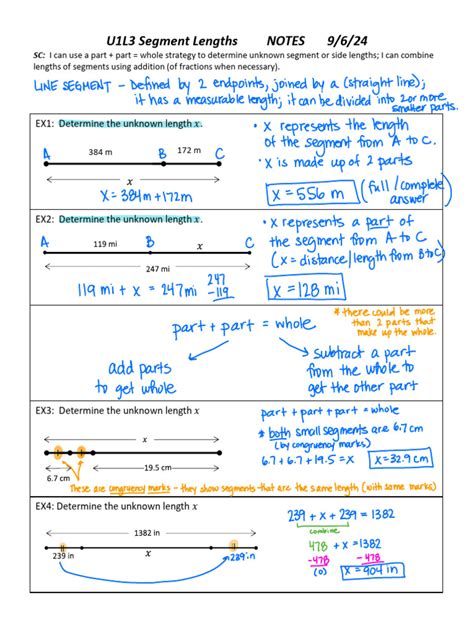 U1L3 Segment Lengths NOTES 9/6/24
SC: I can use a part + part = whole strategy to determine unknown segment or side lengths; I can combine
lengths of segments using addition (of fractions when necessary).
LINE SEGMENT - Defined by 2 endpoints, joined by a (straight line);
it has a measurable length; it can be divided into 2 or more
smaller parts.
EX1: Determine the unknown length x.
A 384 m B 172 m C
x
X = 384m + 172m
• X represents the length
of the segment from A to C.
• X is made up of 2 parts
X = 556 m (full / complete
answer)
EX2: Determine the unknown length x.
A 119 mi B x C
247 mi
119 mi + x = 247 mi
247
-119
• X represents a part of
the segment from A to C
(x = distance/length from B to C)
X = 128 mi
part + part = whole
* there could be more
than 2 parts that
make up the whole.
add parts
to get whole
subtract a part
from the whole to
get the other part
EX3: Determine the unknown length x
x
6.7 cm
19.5 cm
part + part + part = whole
* both small segments are 6.7 cm
(by congruency marks)
6.7 + 6.7 + 19.5 = X
X = 32.9 cm
These are congruency marks - they show segments that are the same length (with same marks)
EX4: Determine the unknown length x
1382 in
239 in x 239 in
239 + x + 239 = 1382
combine
478 + x = 1382
-478 -478
(0) X = 904 in